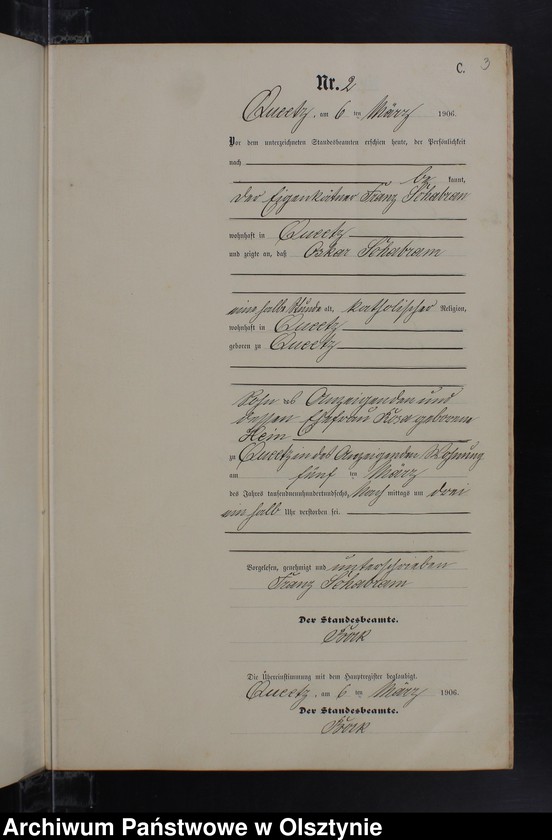 C. 3
Nr. 2
Queetz, am 6 ten März 1906.
Vor dem unterzeichneten Standesbeamten erschien heute, der Persönlichkeit
nach
be kannt,
der Eigenkätner Franz Schabram
wohnhaft in Queetz
und zeigte an, daß Oskar Schabram
eine halbe Stunde alt, katholischer Religion,
wohnhaft in Queetz
geboren zu Queetz
Sohn des Anzeigenden und
dessen Ehefrau Rosa geborene
Hein
zu Queetz in des Anzeigenden Wohnung
am fünf ten März
des Jahres tausendneunhundertundsechs, Nach mittags um drei
ein halb Uhr verstorben sei.
Vorgelesen, genehmigt und unterschrieben
Franz Schabram
Der Standesbeamte.
Die Übereinstimmung mit dem Hauptregister beglaubigt.
Queetz, am 6 ten März 1906.
Der Standesbeamte.
Archiwum Państwowe w Olsztynie